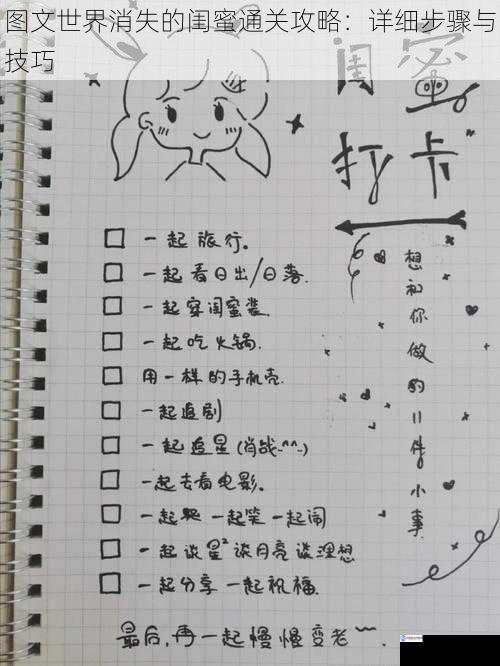 图文世界消失的闺蜜通关攻略：详细步骤与
技巧
闺蜜
打卡
想和你做的11件小事
一起旅行。
一起看日出/日落.
一起穿闺蜜装.
一起吃火锅.
用一样的手机壳.
一起追剧
一起追星(肖战.^^.)
一起去看电影。
一起哭 一起笑 一起闹
一起谈星² 谈月亮 谈理想
一起分享 一起祝福.
最后,再一起慢慢变老~~.